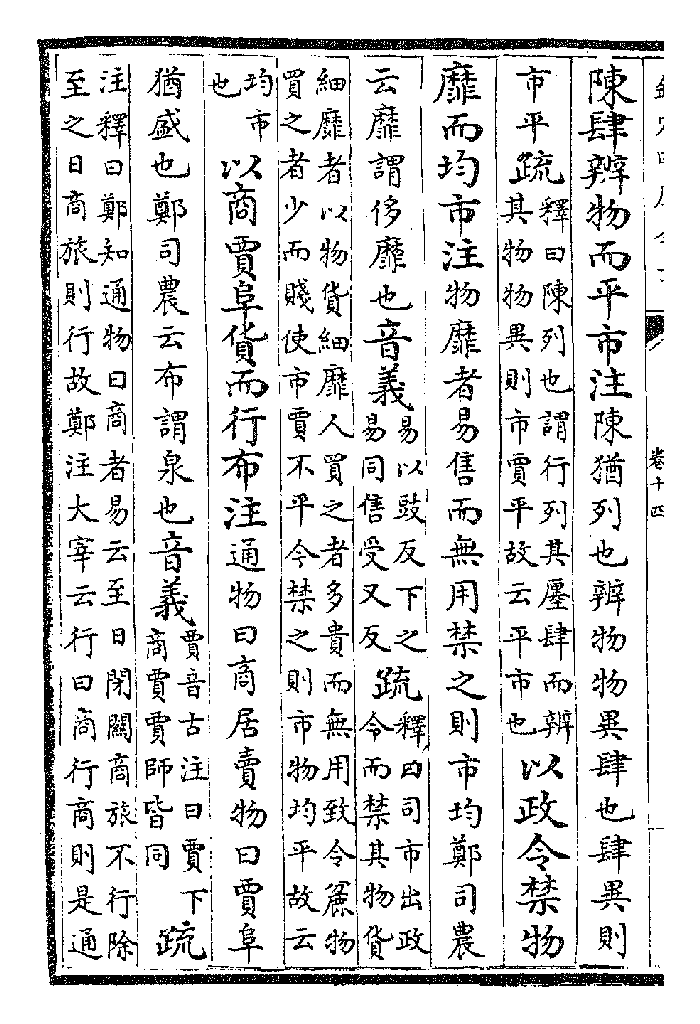 卷十四
陳肆辨物而平市注陳猶列也辨物物異肆也肆異則
市平疏釋曰陳列也謂行列其廛肆而辨
其物物異則市賈平故云平市也以政令禁物
靡而均市注物靡者易售而無用禁之則市均鄭司農
云靡謂侈靡也音義易以豉反下之
易同售受又反疏釋曰司市出政
令而禁其物貨
細靡者以物貨細靡人買之者多貴而無用致令麤物
買之者少而賤使市賈不平今禁之則市物均平故云
均市
也以商賈阜貨而行布注通物曰商居賣物曰賈阜
猶盛也鄭司農云布謂泉也音義賈音古注曰賈下
商賈賈師皆同疏
注釋曰鄭知通物曰商者易云至日閉關商旅不行除
至之日商旅則行故鄭注大宰云行曰商行商則是通